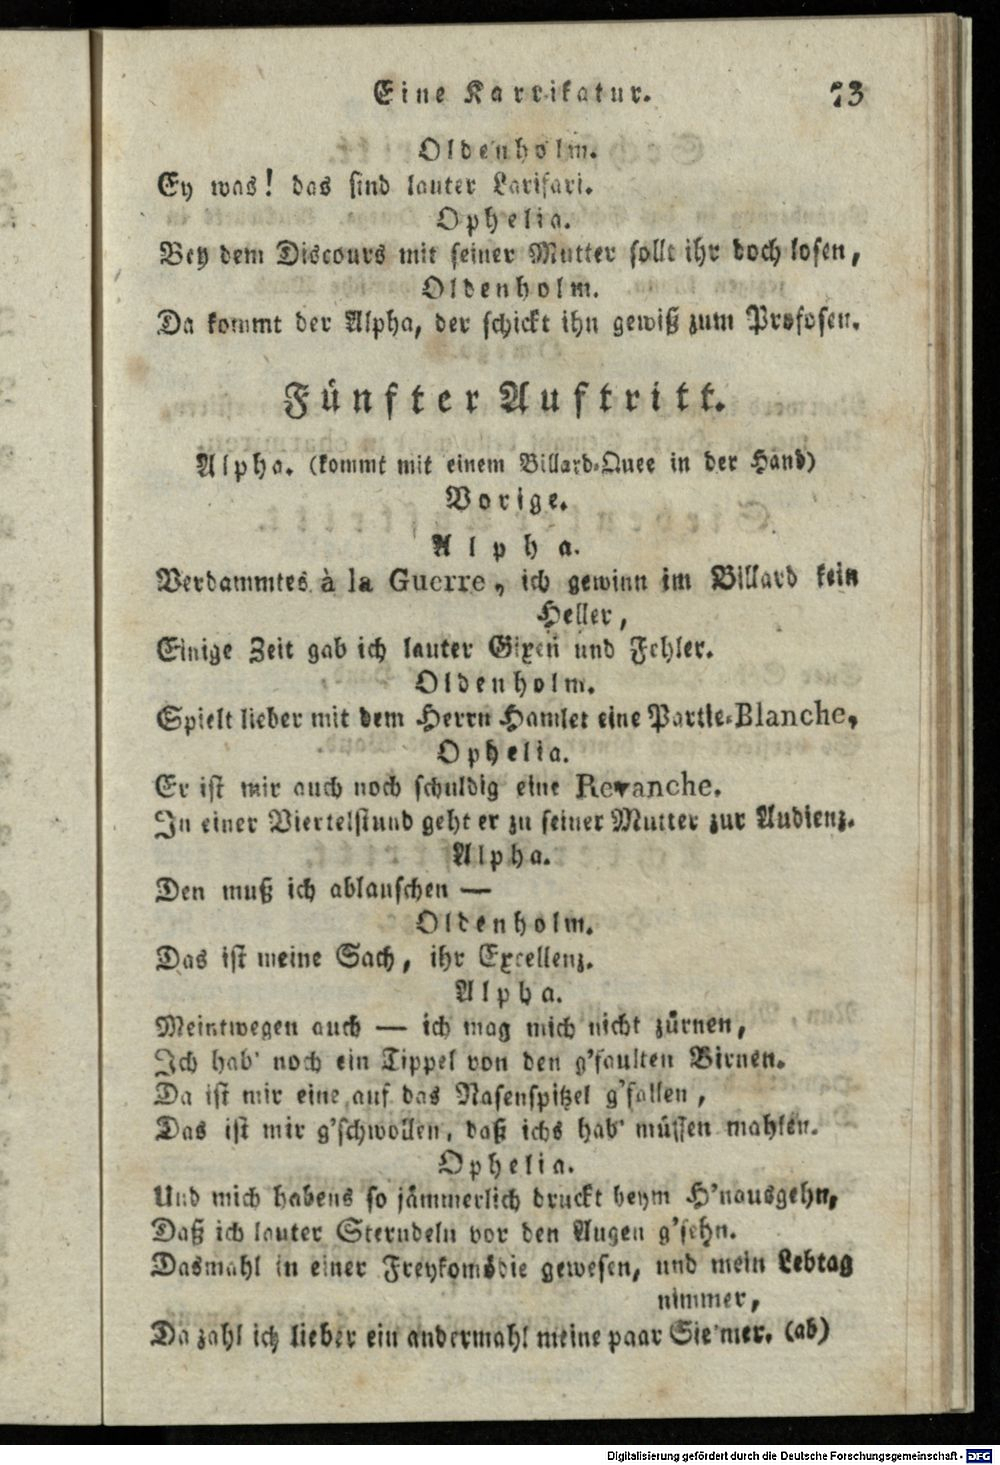 Eine Karrikatur. 73
Oldenholm.
Ey was! das sind lauter Larifari.
Ophelia.
Bey dem Discours mit seiner Mutter sollt ihr doch losen,
Oldenholm.
Da kommt der Alpha, der schickt ihn gewiß zum Profosen.
Fünfter Auftritt.
Alpha. (kommt mit einem Billard-Quee in der Hand)
Vorige.
Alpha.
Verdammtes à la Guerre, ich gewinn im Billard kein
Heller,
Einige Zeit gab ich lauter Gixen und Fehler.
Oldenholm.
Spielt lieber mit dem Herrn Hamlet eine Partie-Blanche,
Ophelia.
Er ist mir auch noch schuldig eine Revanche.
In einer Viertelstund geht er zu seiner Mutter zur Audienz.
Alpha.
Den muß ich ablauschen —
Oldenholm.
Das ist meine Sach, ihr Excellenz.
Alpha.
Meintwegen auch — ich mag mich nicht zürnen,
Ich hab' noch ein Tippel von den g'faulten Birnen.
Da ist mir eine auf das Nasenspitzel g'fallen,
Das ist mir g'schwollen, daß ichs hab' müssen mahlen.
Ophelia.
Und mich habens so jämmerlich druckt beym H'nausgehn,
Daß ich lauter Sterndeln vor den Augen g'sehn.
Dasmahl in einer Freykomödie gewesen, und mein Lebtag
nimmer,
Da zahl ich lieber ein andermahl meine paar Sie'mer. (ab)
Digitalisierung gefördert durch die Deutsche Forschungsgemeinschaft - DFG